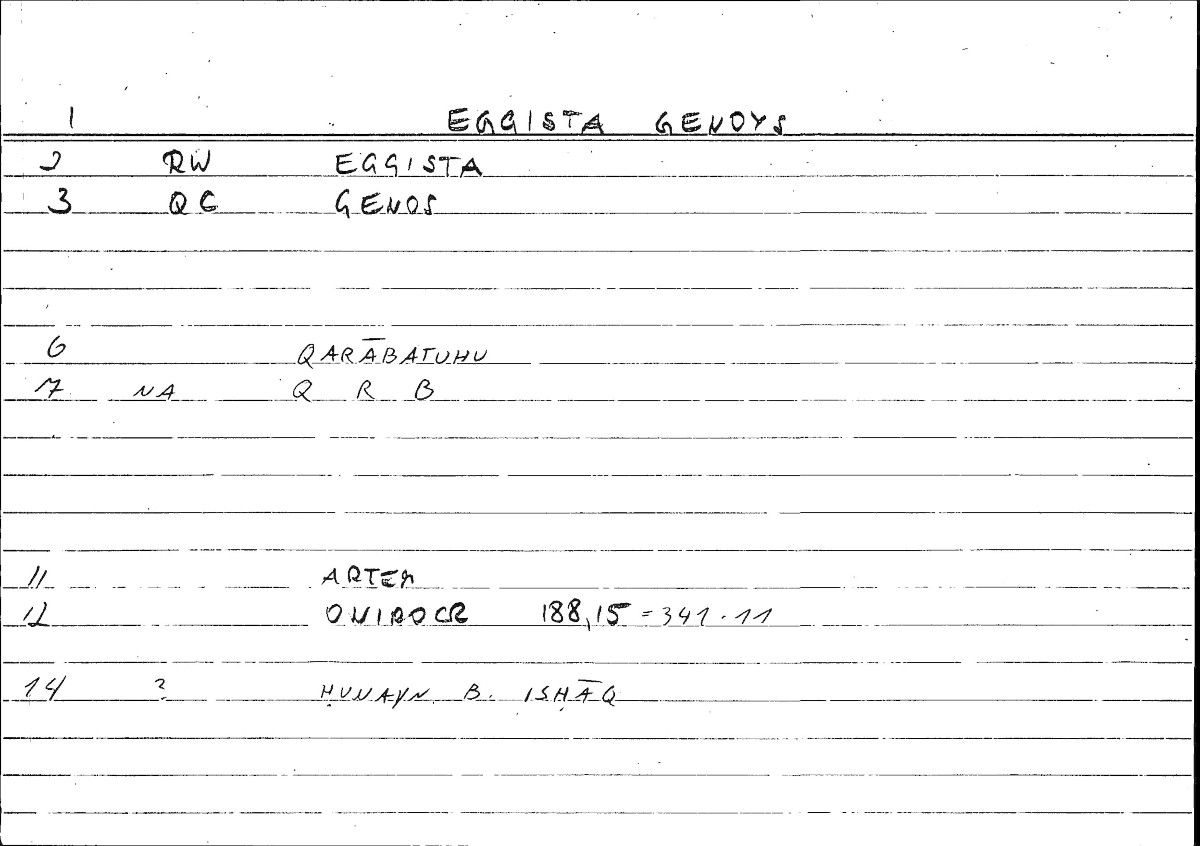 1 EGGISTA GENOYS
2 RW EGGISTA
3 QG GENOS
6 QARĀBATUHU
7 NA Q R B
11 ARTEM
12 ONIROCR 188,15 = 341.11
14 ? ḤUNAYN B. ISḤĀQ